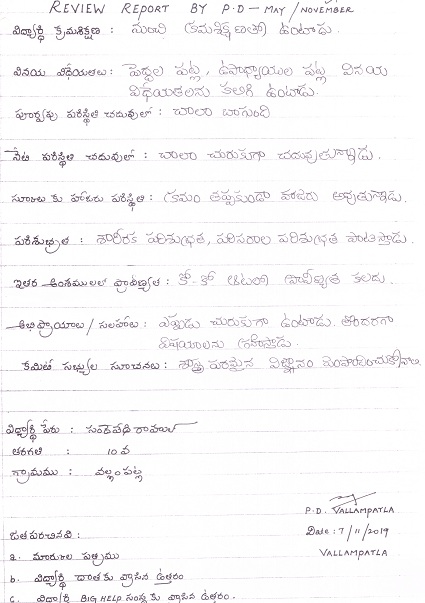 REVIEW REPORT BY P.D - MAY / NOVEMBER
విద్యార్థి క్రమశిక్షణ : మంచి క్రమశిక్షణతో ఉంటాడు.
వినయ విధేయతలు : పెద్దల పట్ల, ఉపాధ్యాయుల పట్ల వినయ
విధేయతలను కలిగి ఉంటాడు.
పూర్వపు పరిస్థితి చదువులో : చాలా బాగుంది
నేటి పరిస్థితి చదువులో : చాలా చురుకుగా చదువుతున్నాడు.
స్కూలు కు హాజరు పరిస్థితి : క్రమం తప్పకుండా హాజరు అవుతున్నాడు.
పరిశుభ్రత : శారీరక పరిశుభ్రత, పరిసరాల పరిశుభ్రత పాటిస్తాడు.
ఇతర అంశములలో ప్రావీణ్యత : కో-కో ఆటలో ప్రావీణ్యత కలదు.
అభిప్రాయాలు / సలహాలు : ఎప్పుడు చురుకుగా ఉంటాడు. తొందరగా
విషయాలను గ్రహిస్తాడు.
కమిటి సభ్యుల సూచనలు : శాస్త్ర పరమైన విజ్ఞానం పెంపొందించుకోవాలి.
విద్యార్థి పేరు : రాహుల్
తరగతి : 10 వ
గ్రామము : వల్లంపట్ల
P.D. VALLAMPATLA
Date : 7/11/2019
VALLAMPATLA
జతపరచినవి :
a. మార్కుల పత్రము
b. విద్యార్థి దాతకు వ్రాసిన ఉత్తరం
c. విద్యార్థి BIG HELP సంస్థ కు వ్రాసిన ఉత్తరం.